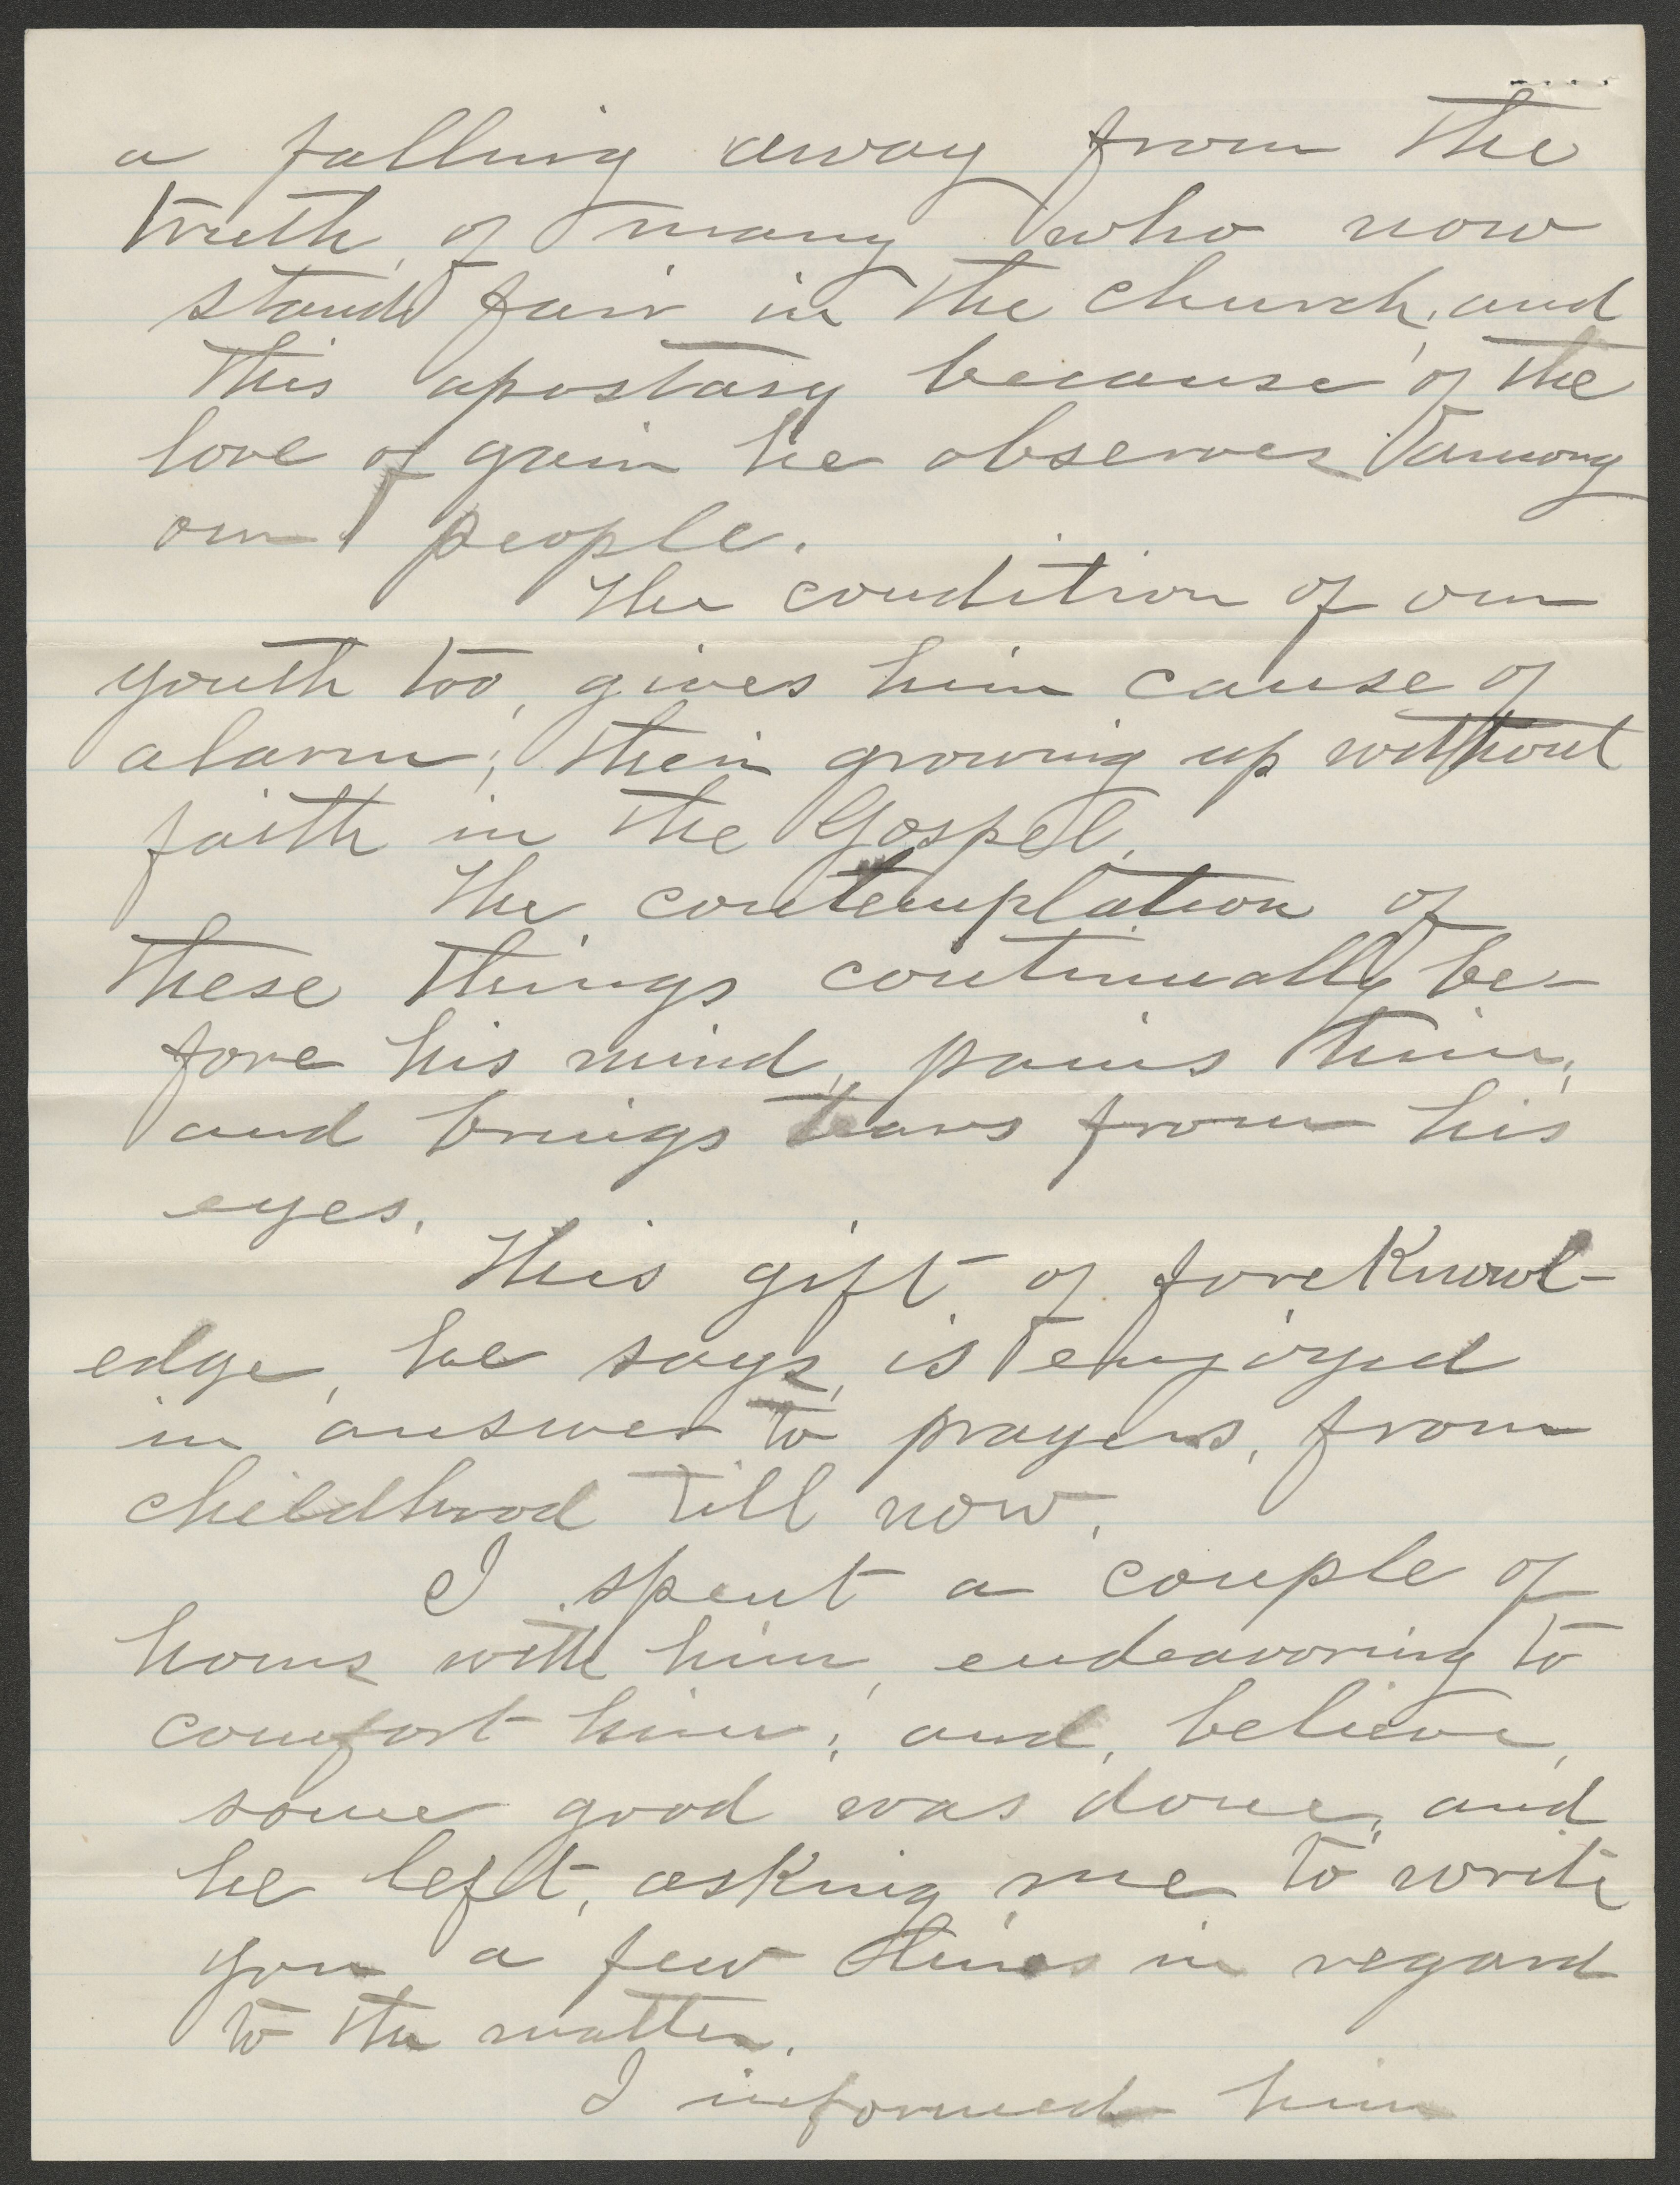 a falling away from the
truth, of many who now
stand fair in the church, and
this apostasy because of the
love of gain he observes among
our people.
The condition of our
youth too, gives him cause of
alarm; their growing up without
faith in the Gospel.
The contemplation of
these things continually be-
fore his mind, pains him,
and brings tears from his
eyes.
This gift of foreKnowl-
edge, he says, is enjoyed
in answer to prayers, from
childhood till now.
I spent a couple of
hours with him, endeavoring to
comfort him; and, believe,
some good was done, and
he left, asking me to write
you a few lines in regard
to the matter.
I informed him